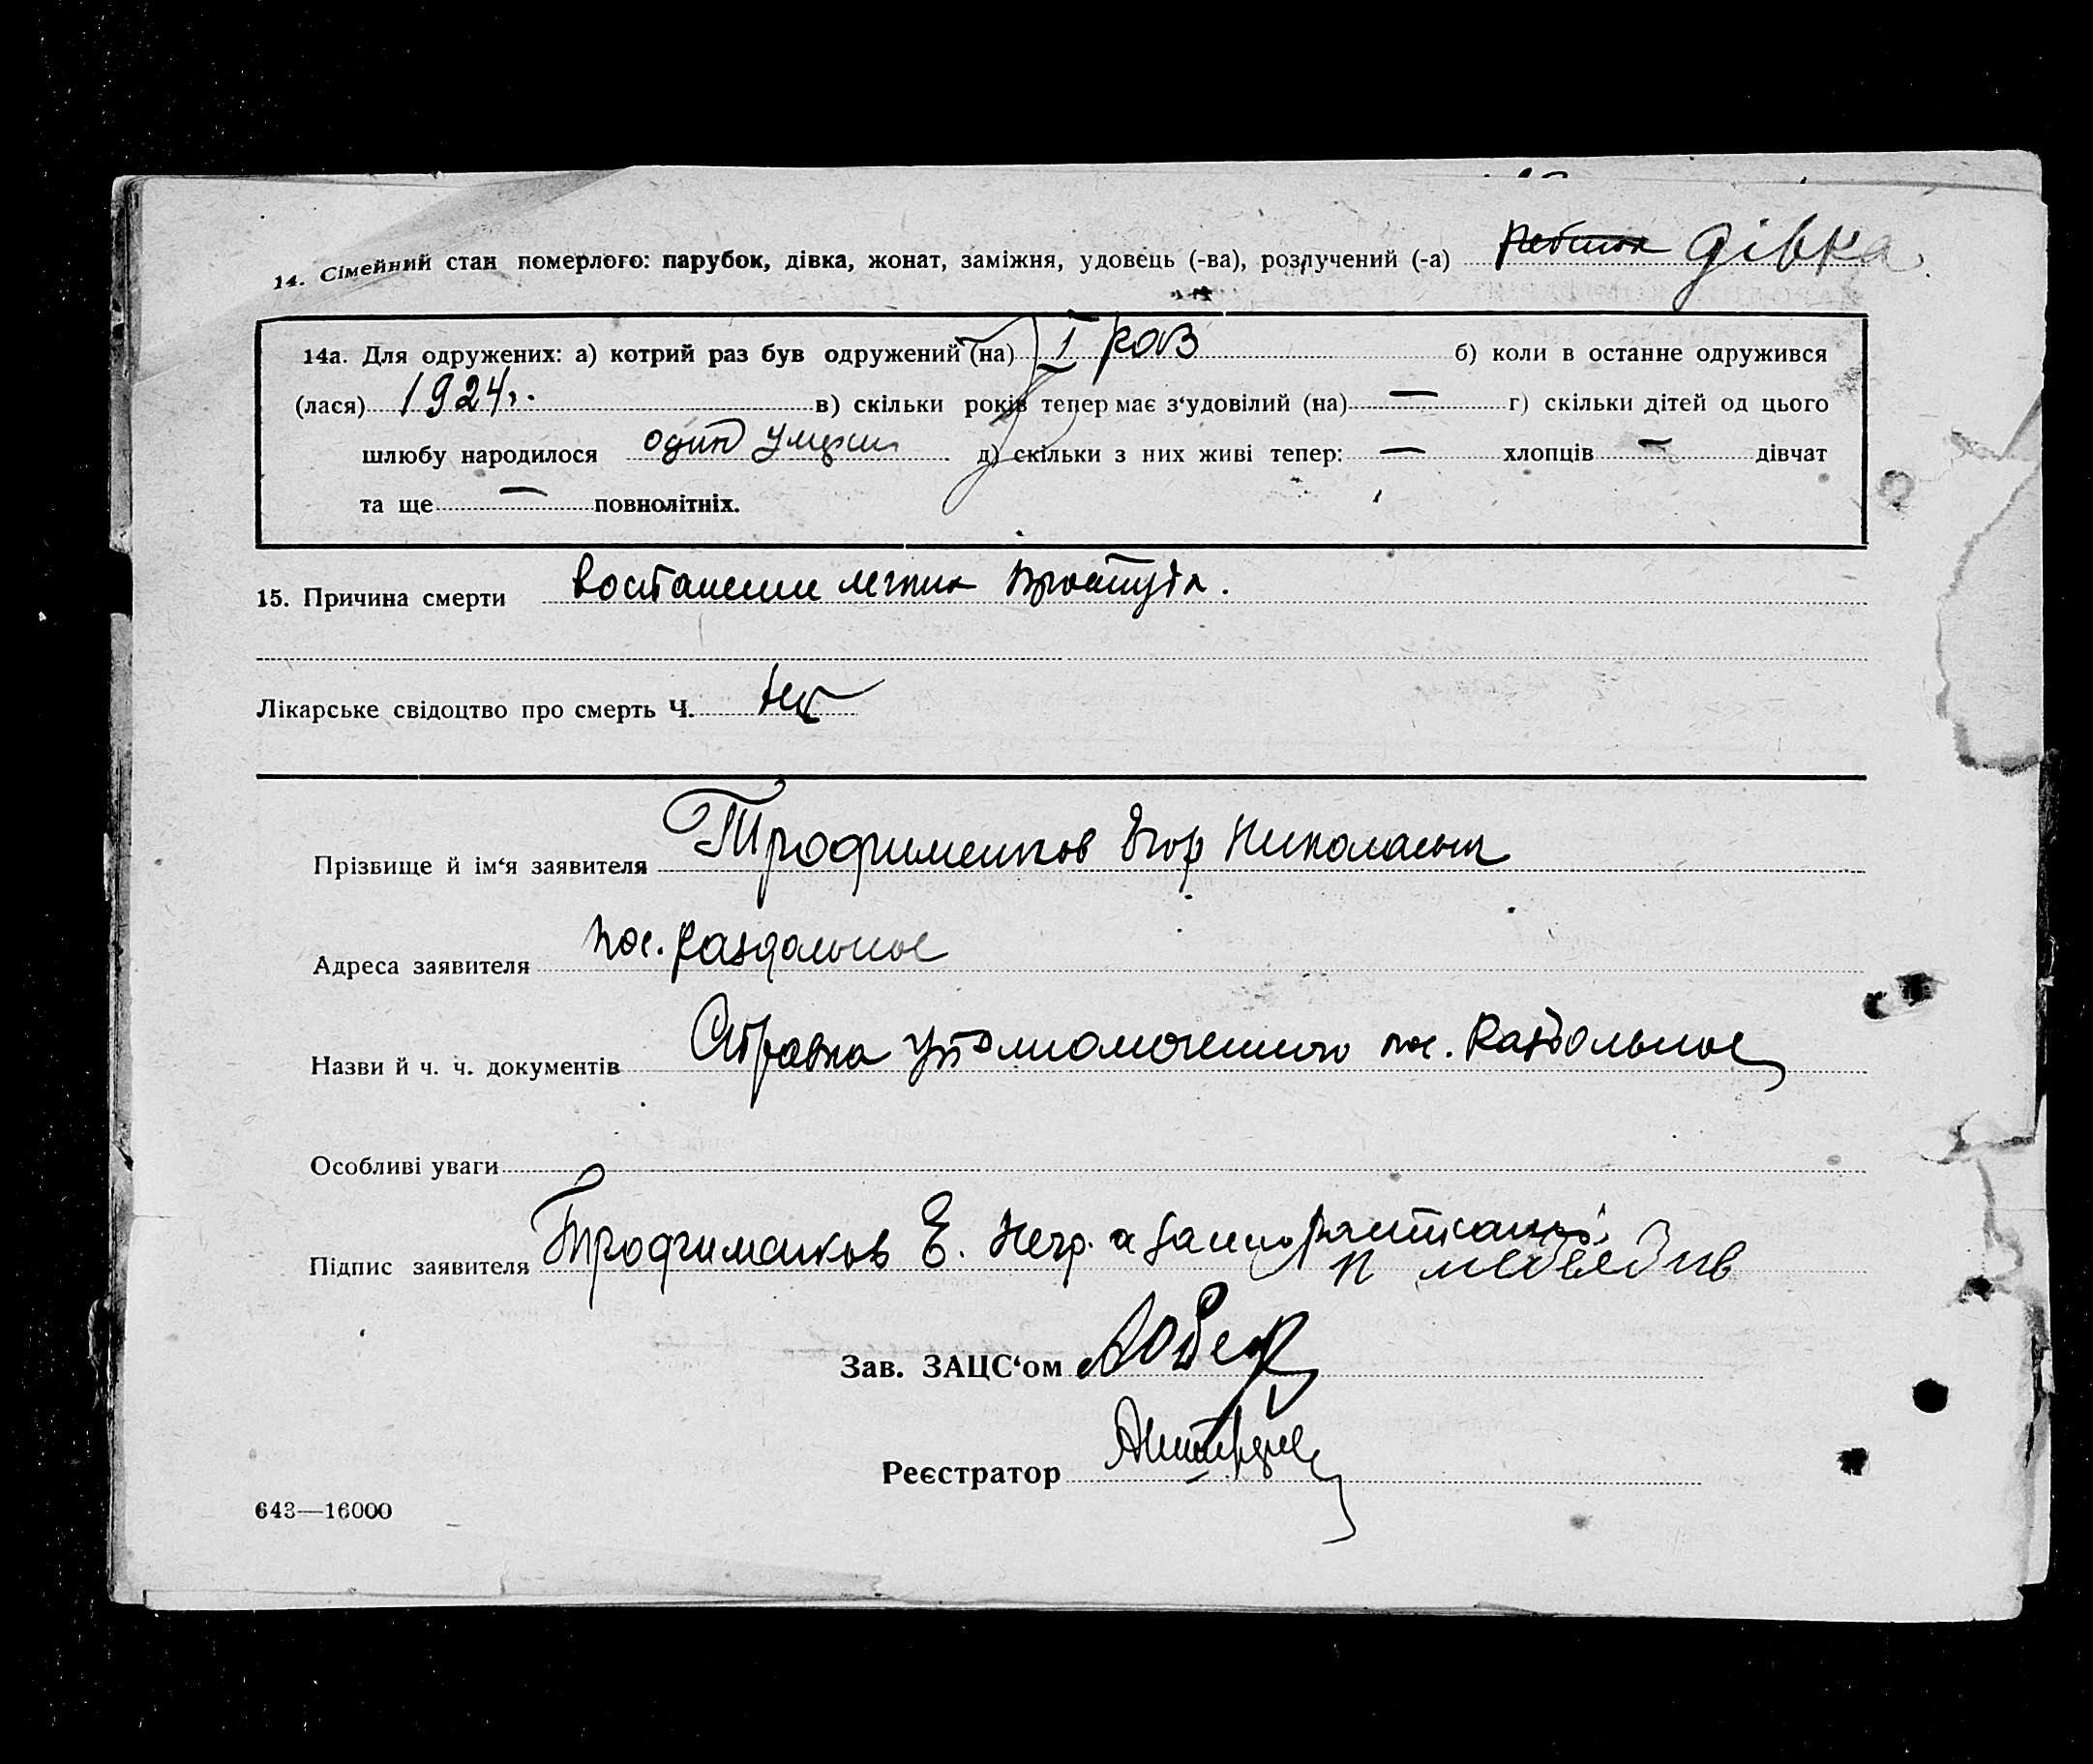 14. Сімейний стан померлого: парубок, дівка, жонат, заміжня, удовець (-ва), розлучений (-а) дівка
14а. Для одружених: а) котрий раз був одружений (на) I раз б) коли в останне одружився
(лася) 1924 г. в) скільки років тепер має з‘удовілий (на) — г) скільки дітей од цього
шлюбу народилося один д) скільки з них живі тепер: — хлопців — дівчат
та ще — повнолітніх.
15. Причина смерти легких простуда.
Лікарське свідоцтво про смерть Ч. нет
Прізвище й ім‘я заявителя Трофименков Егор Николаевич
Адреса заявителя пос. Раздольное
Назви й ч. ч. документів Справка уполномоченного пос. Раздольное
Особливі уваги
Підпис заявителя Трофименков Е. Негр. а за него расписался
Зав. ЗАЦС‘ом
Реєстратор
643—16000